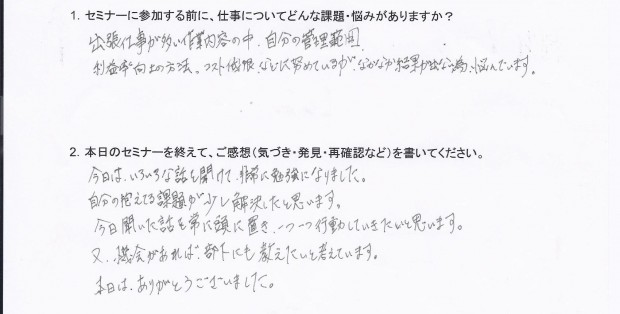 1. セミナーに参加する前に、仕事についてどんな課題・悩みがありますか？
出張仕事が多い作業内容の中、自分の管理範囲
利益率向上の方法、コスト低限などに努めているがなかなか結果が出ない為、悩んでいます。
2. 本日のセミナーを終えて、ご感想（気づき・発見・再確認など）を書いてください。
今日は、いろいろな話を聞けて、非常に勉強になりました。
自分の抱えてる課題が少し解決したと思います。
今日聞いた話を常に頭に置き、一つ一つ行動していきたいと思います。
又、機会があれば、部下にも教えたいと考えています。
本日は、ありがとうございました。